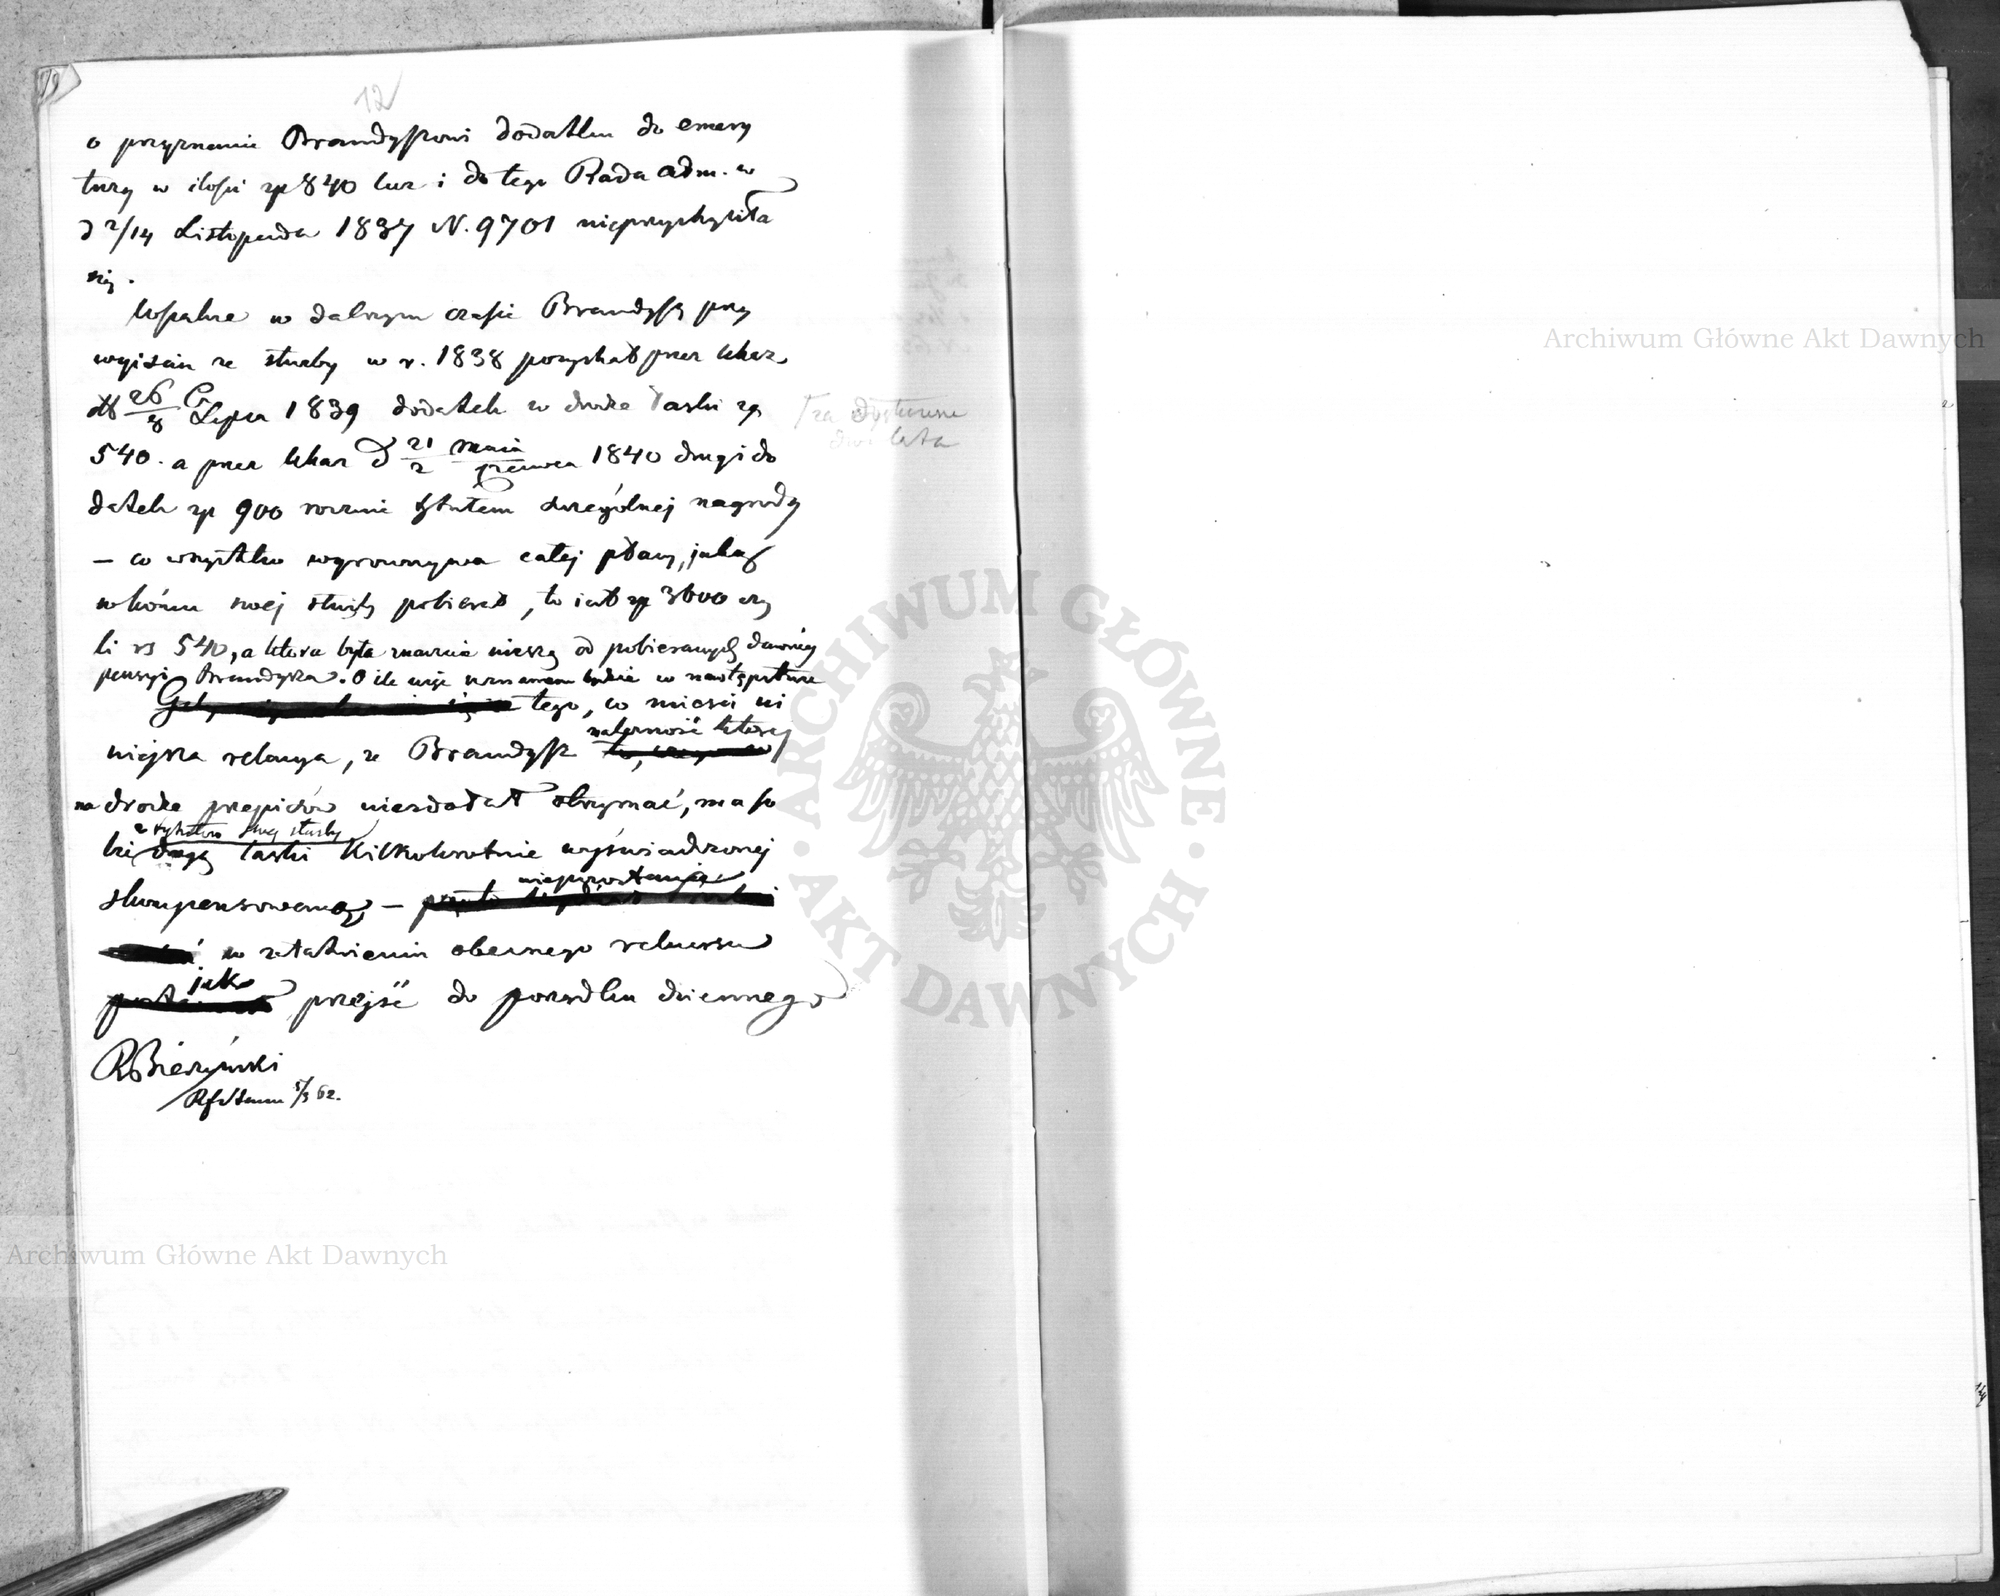 79
12
o przyznanie Brandysowi dodatku do emery
tury w ilości zp 840 lecz i do tego Rada adm. w
d 2/14 Listopada 1837 N. 9701 nieprzychyliła
się.
w dalszym czasie Brandys przy
wyiściu ze służby w r. 1838 pozyskał przez Ukaz
26/8 Lipca 1839 dodatek w drodze łaski zp
540. a przez Ukaz d 21/2 Maia/czerwca 1840 drugi do
datek zp 900 rocznie tytułem szczególnej nagrody
— co wszystko wyrównywa całej płacy, jaką
w końcu swej służby pobierał, to iest zp 3600 czy
li rs 540, a która była znacznie niższą od pobieranych dawniej
pensyi Brandysa. O ile więc uznanem będzie w następstwie
tego, co mieści ni
niejsza relacya, że Brandys
należność której
na drodze przepisów niezdołał otrzymać, ma so
z tytułu swej służby
bie drogą łaski kilkokrotnie wyświadczonej
skompensowaną, —
niepozostanie
w załatwieniu obecnego rekursu
jak
przejść do porządku dziennego
Za
lata
RBierzyński
5/3 62.
Archiwum Główne Akt Dawnych
Archiwum Główne Akt Dawnych
ARCHIWUM GŁÓWNE
AKT DAWNYCH